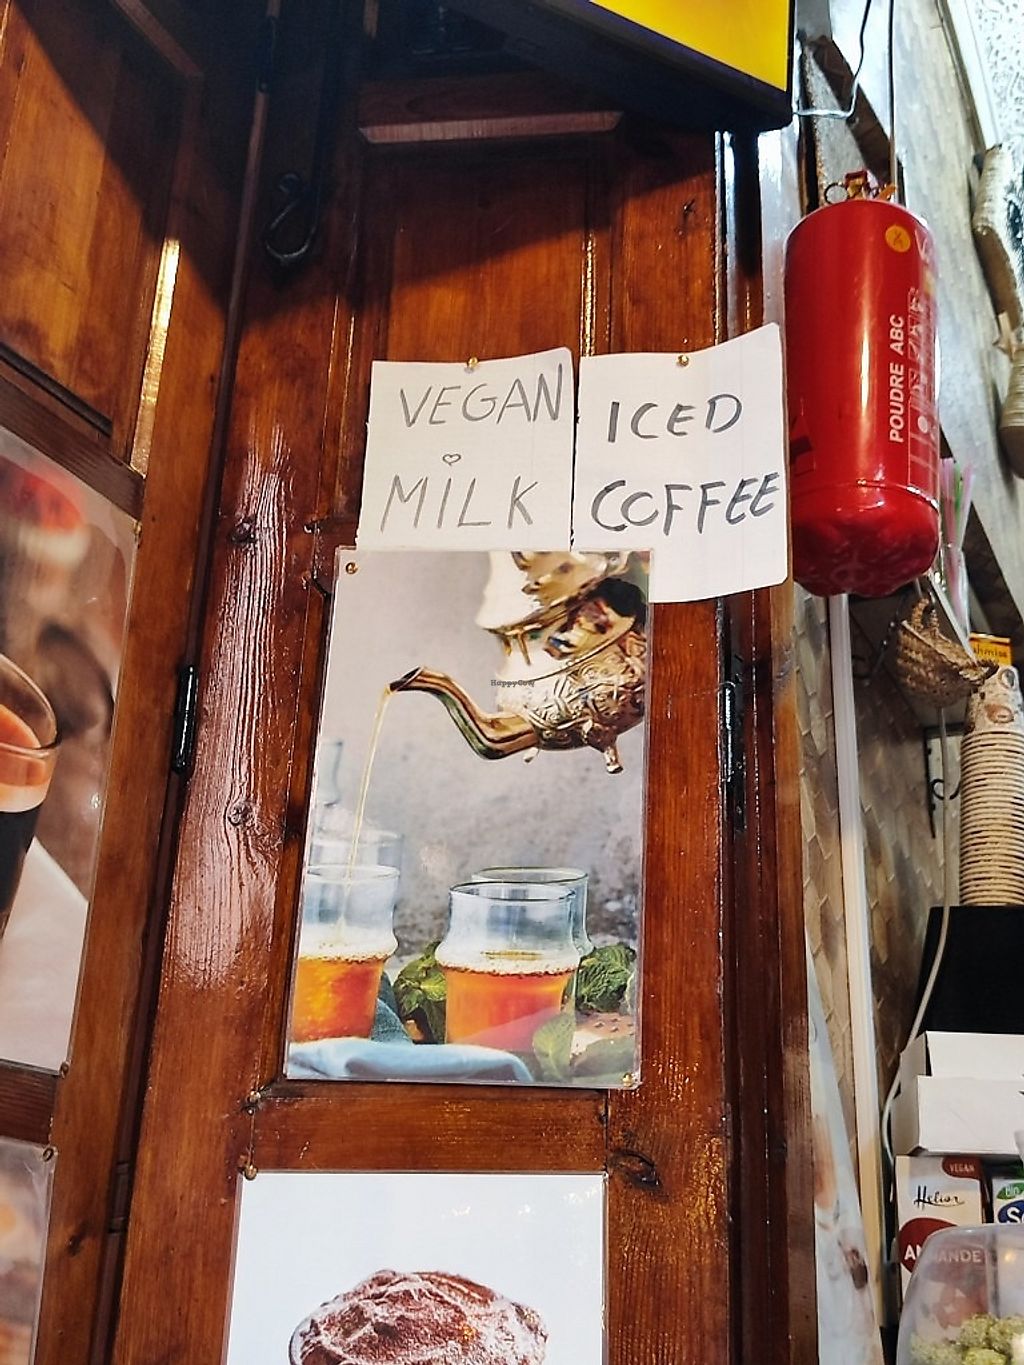 VEGAN
MILK
ICED
COFFEE
POUDRE ABC
HappyCow
VEGAN
Helior
BIO